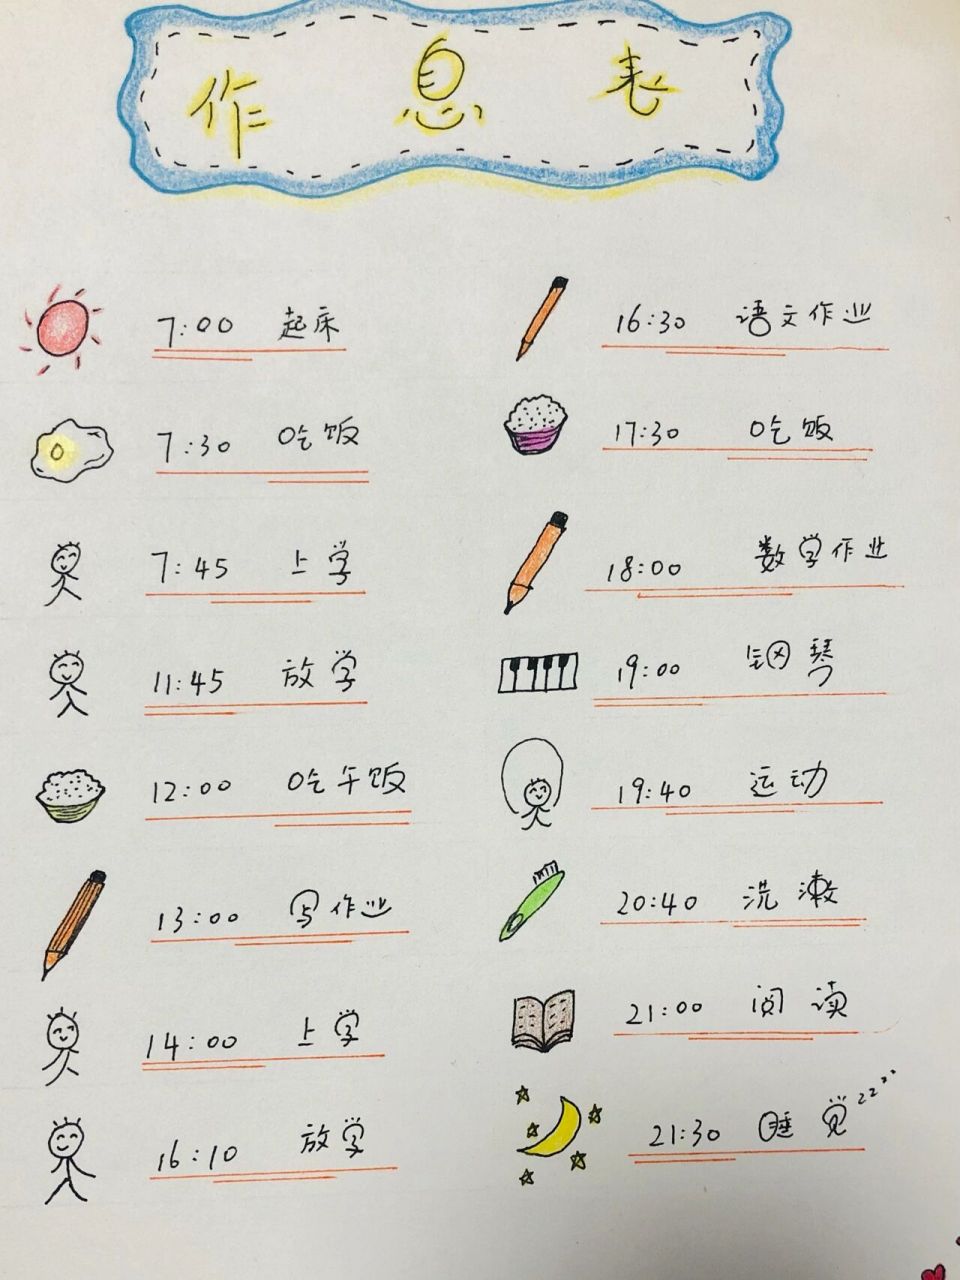 作息表
7:00 起床
7:30 吃饭
7:45 上学
11:45 放学
12:00 吃午饭
13:00 写作业
14:00 上学
16:10 放学
16:30 语文作业
17:30 吃饭
18:00 数学作业
19:00 钢琴
19:40 运动
20:40 洗漱
21:00 阅读
21:30 睡觉zzzz